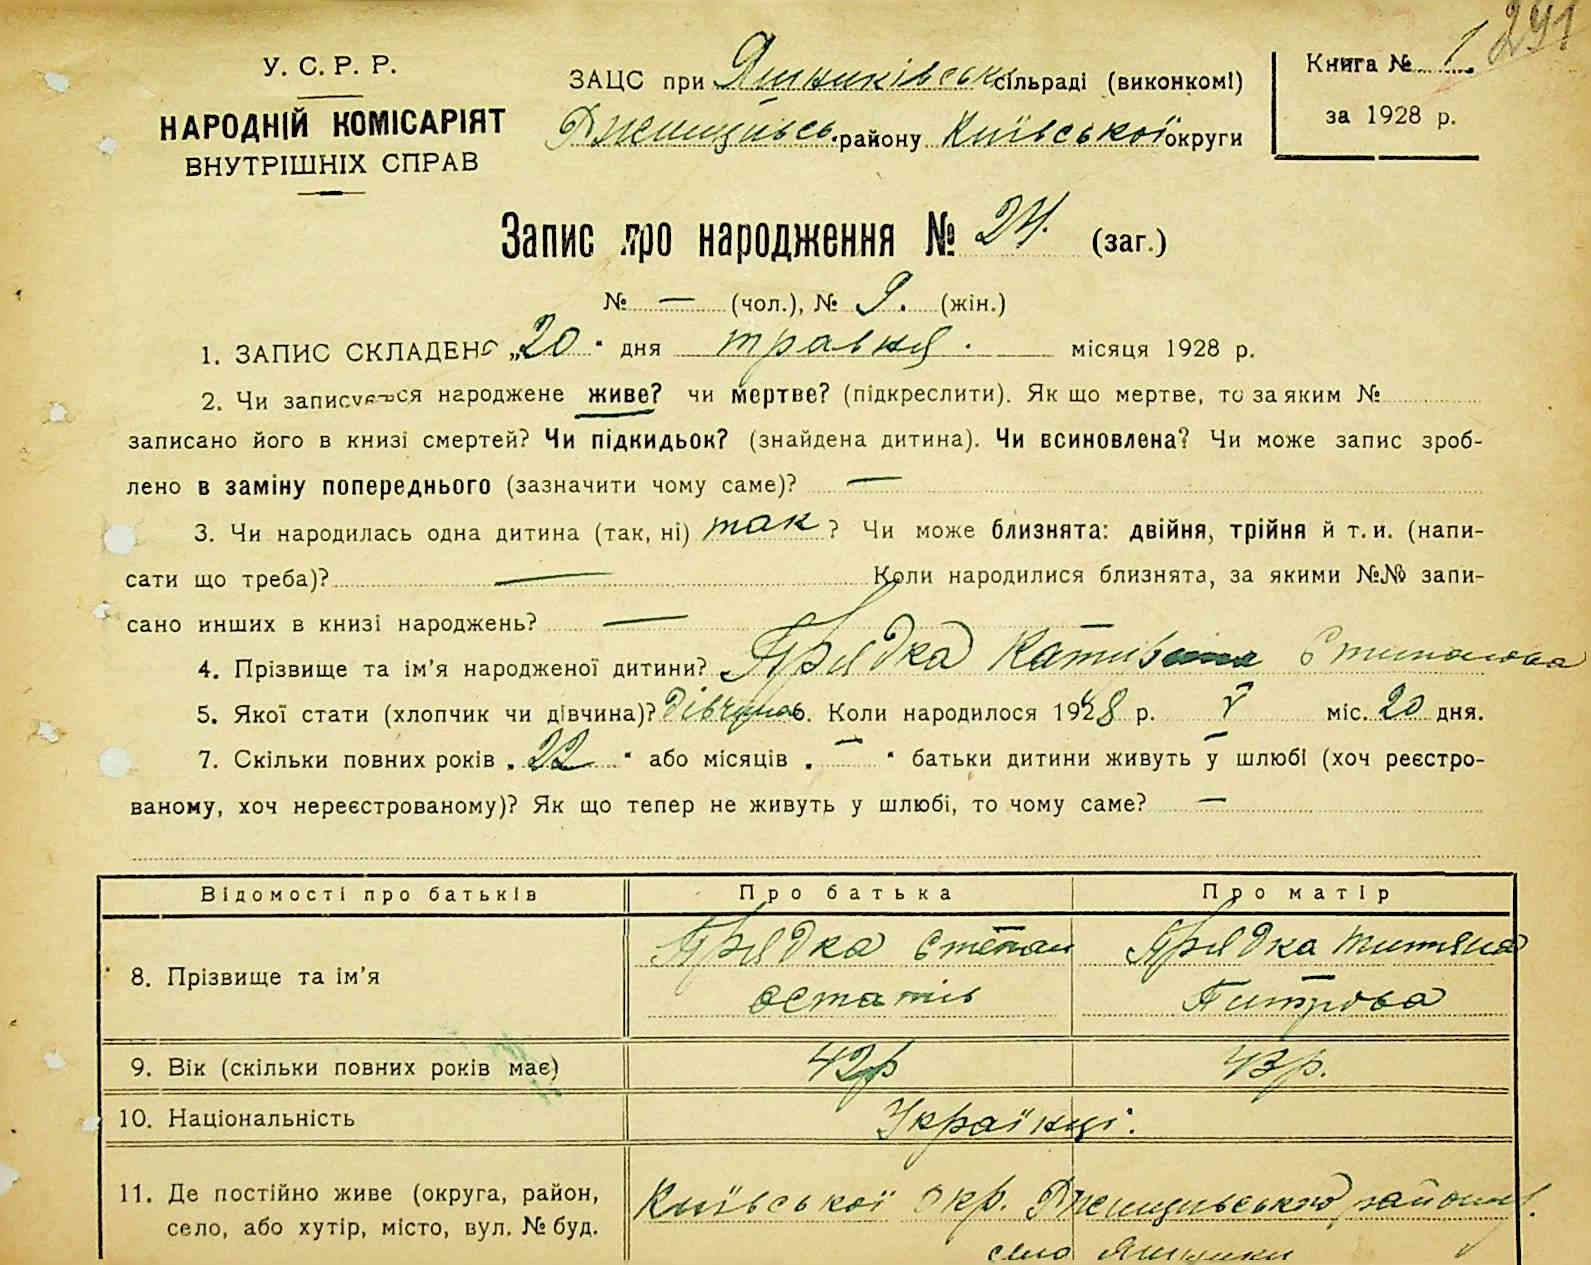 291
У. С. Р. Р.
НАРОДНІЙ КОМІСАРІЯТ
ВНУТРІШНІХ СПРАВ
ЗАЦС при Яшниківські сільраді (виконкомі)
Ржищівсь. району Київської округи
Книга № 1
за 1928 р.
Запис про народження № 24. (заг.)
№ — (чол.), № 9. (жін.)
1. ЗАПИС СКЛАДЕНО „20" дня травня. місяця 1928 р.
2. Чи записується народжене живе? чи мертве? (підкреслити). Як що мертве, то за яким №
записано його в книзі смертей? Чи підкидьок? (знайдена дитина). Чи всиновлена? Чи може запис зроб-
лено в заміну попереднього (зазначити чому саме)? —
3. Чи народилась одна дитина (так, ні) так? Чи може близнята: двійня, трійня й т. и. (напи-
сати що треба)? — Коли народилися близнята, за якими №№ запи-
сано инших в книзі народжень? —
4. Прізвище та ім'я народженої дитини? Прядка
5. Якої стати (хлопчик чи дівчина)? Дівчина 6. Коли народилося 1928 р. V міс. 20 дня.
7. Скільки повних років „22" або місяців „—" батьки дитини живуть у шлюбі (хоч реєстро-
ваному, хоч нереєстрованому)? Як що тепер не живуть у шлюбі, то чому саме? —
Відомості про батьків Про батька Про матір
8. Прізвище та ім'я Прядка Степан Прядка Титяна
Остапів Питрова
9. Вік (скільки повних років має) 42р 43р.
10. Національність Українці.
11. Де постійно живе (округа, район, Київської окр. Ржищівського району.
село, або хутір, місто, вул. № буд. село Яшники